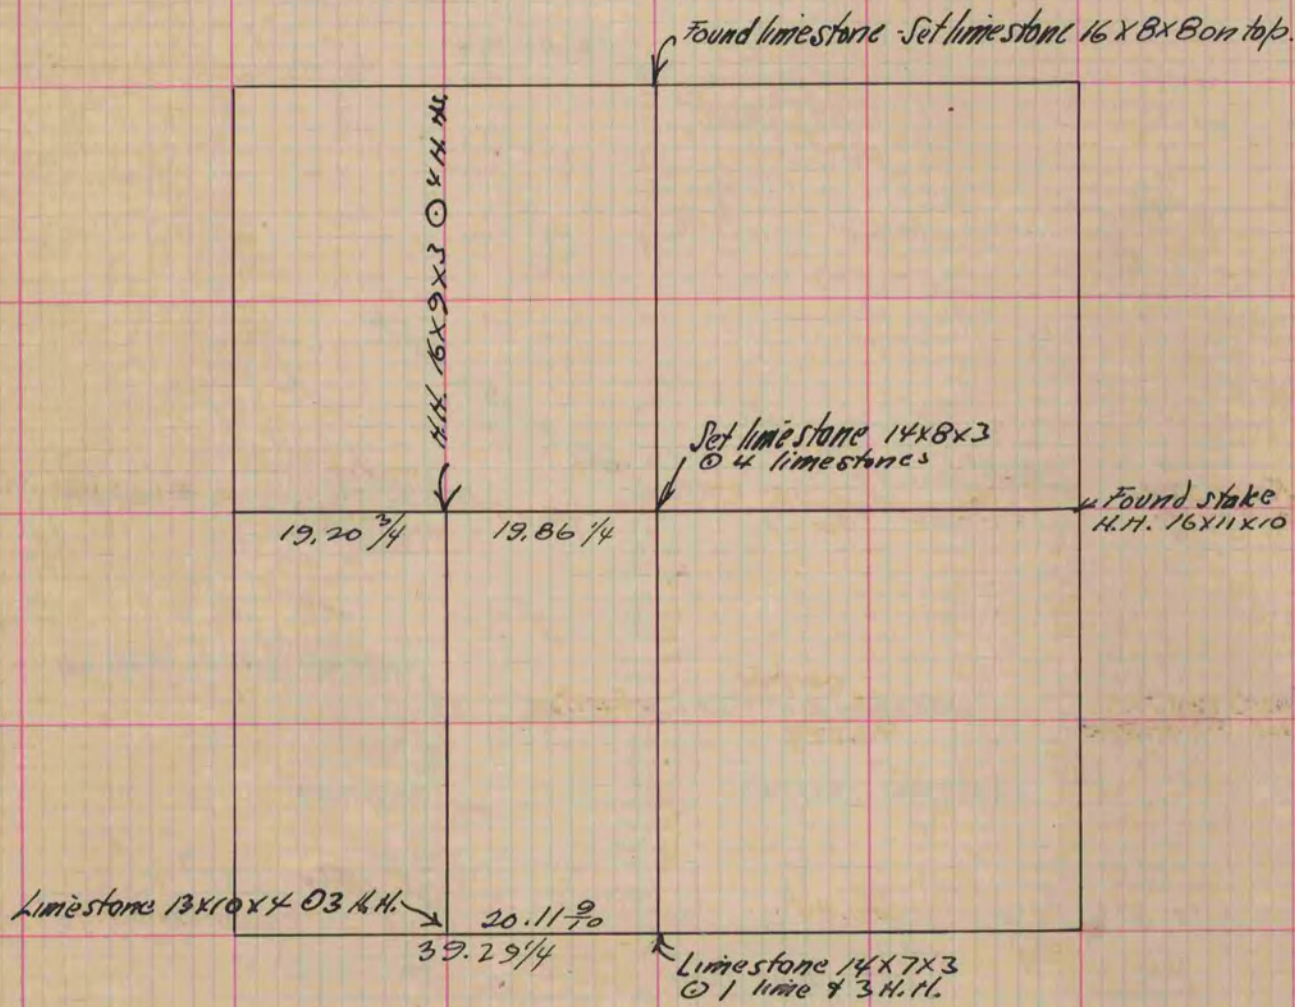 Found limestone - Set limestone 16 X 8 X 8 on top.
H.H. 16X9X3 ⊙ 4 H.H.
Set limestone 14X8X3
⊙ 4 limestones
19.20 3/4
19.86 1/4
Found stake
H.H. 16X11X10
Limestone 13X10X4 ⊙ 3 H.H.
20.11 9/10
39.29 1/4
Limestone 14X7X3
⊙ 1 lime & 3 H.H.